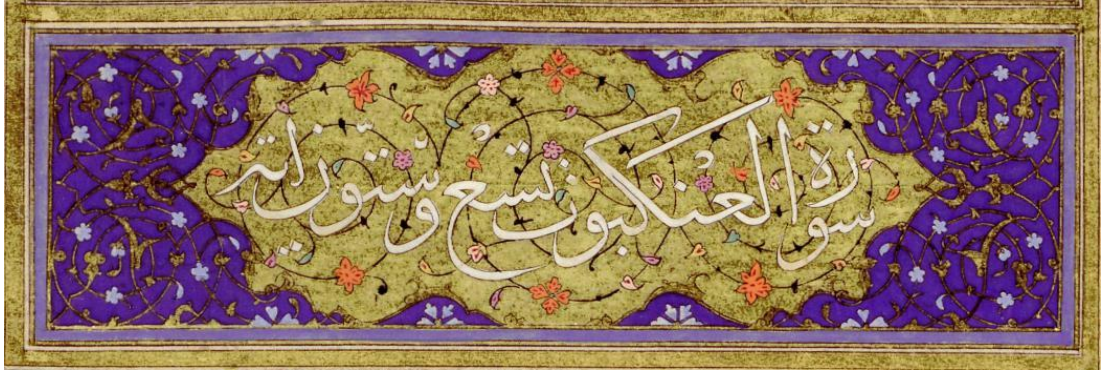 سورة العنكبوت تسع وستون اية